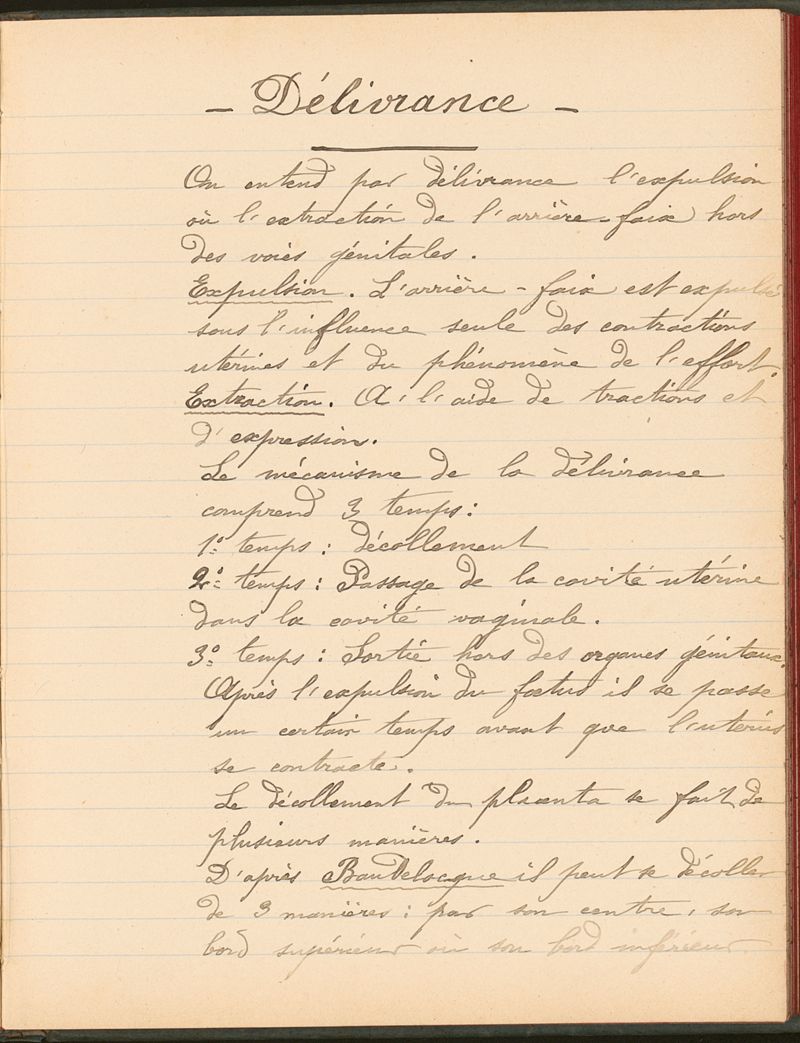 - Délivrance -
On entend par délivrance l'expulsion
où l'extraction de l'arrière-faix hors
des voies génitales.
Expulsion. L'arrière-faix est expulsé
sous l'influence seule des contractions
utérines et du phénomène de l'effort.
Extraction. A l'aide de tractions et
d'expression.
Le mécanisme de la délivrance
comprend 3 temps:
1º temps: décollement
2º temps: Passage de la cavité utérine
dans la cavité vaginale.
3º temps: Sortie hors des organes génitaux.
Après l'expulsion du foetus il se passe
un certain temps avant que l'utérus
se contracte.
Le décollement du placenta se fait de
plusieurs manières.
D'après Baudelocque il peut se décoller
de 3 manières: par son centre, son
bord supérieur où son bord inférieur.